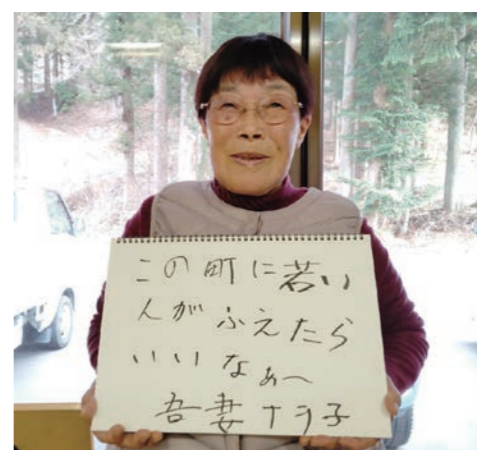 この町に若い
人がふえたら
いいなぁ〜
吾妻ナラ子